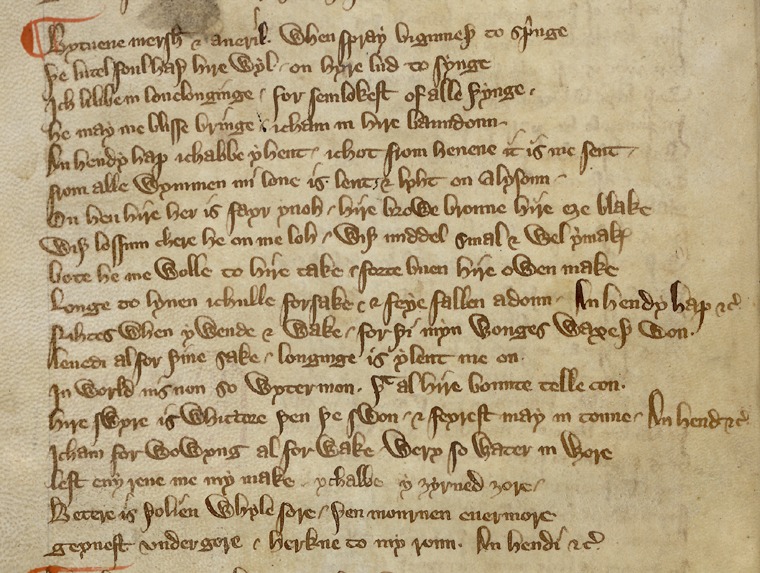 Bytuene mersh & aueril. When spray biginneþ to sp̃nge
þe lutel foul haþ hire wyl. on hyre lud to synge
Ich libbe in louelonginge. for semlokest of alle þynge.
he may me blisse bringe. icham in hire baundoun.
An hendy hap ichabbe yhent. ichot from heuene it is me sent.
from alle wymmen mi loue is lent. & lyht on Alysoun.
On heu hire her is fayr ynoh. hire browe broune hire eȝe blake
wiþ lossum chere he on me loh. wiþ middel smal & wel ymake
bote he me wolle to hire take. forte buen hire owen make
Longe to lyuen ichulle forsake. & feye fallen adoun. An hendy hap &c̃.
Nihtes when y wende & wake. for þi myn wonges waxeþ won.
leuedi al for þine sake. longinge is ylent me on.
In world nis non so wytermon. þᵗ al hire bounte telle con.
hire swyre is whittore þen þe swon. & feyrest may in toune. An hend &c̃.
Icham for wowyng al forwake. wery so water in wore
lest eny reue me my make. ychabbe y ȝyrned ȝore.
Betere is þolien whyle sore. þen mournen euermore.
geynest vndergore. herkne to my roun. An hendi &c̃.